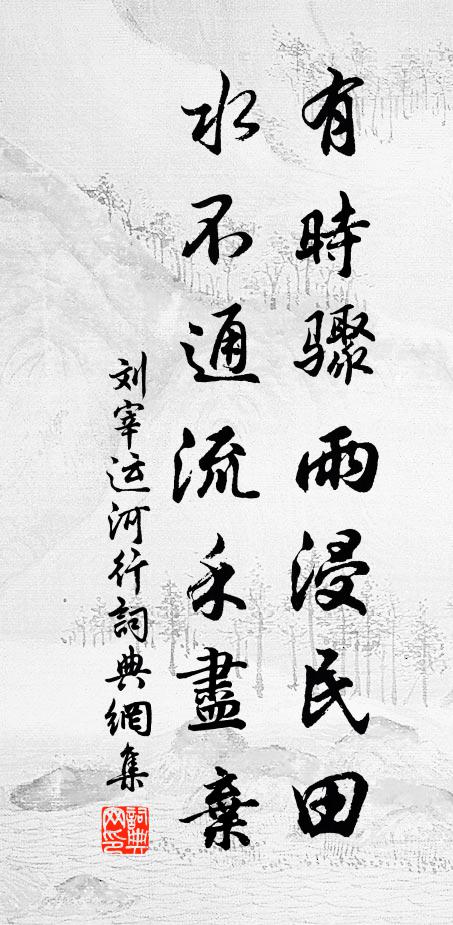 有時驟雨浸民田
水不通流禾盡棄
刘宰运河行詞典網集
詞典网印